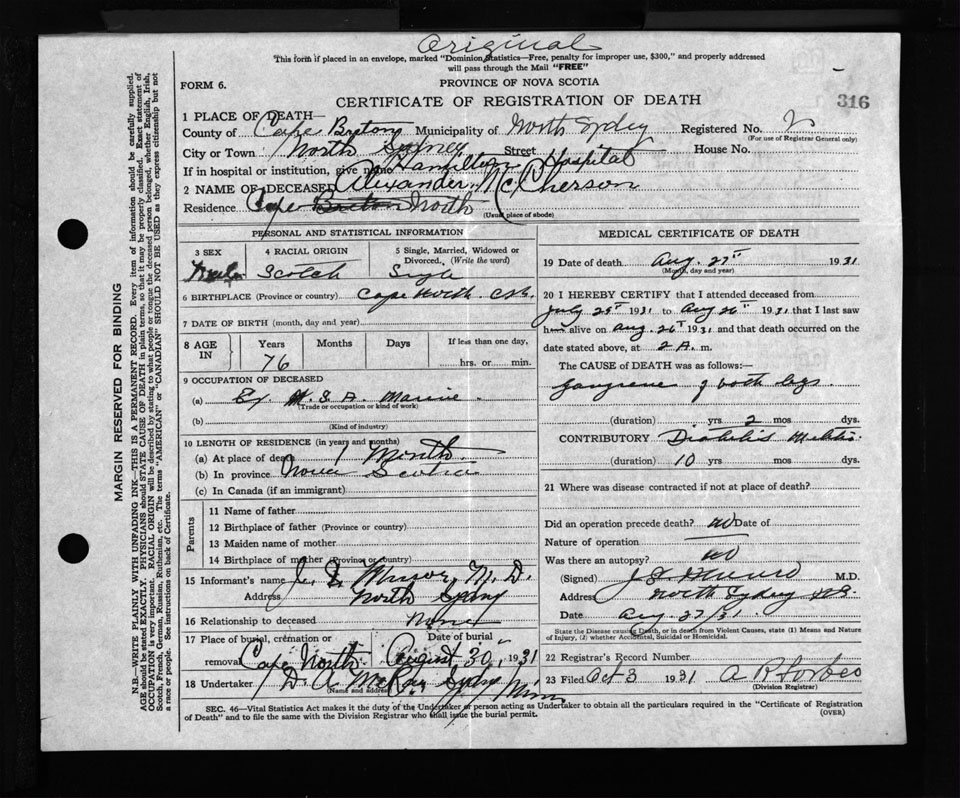 Original
This form if placed in an envelope, marked "Dominion Statistics—Free, penalty for improper use, $300," and properly addressed
will pass through the Mail "FREE"
FORM 6.
PROVINCE OF NOVA SCOTIA
CERTIFICATE OF REGISTRATION OF DEATH
316
1 PLACE OF DEATH—
County of Cape Breton Municipality of North Sydney Registered No. 2
(For use of Registrar General only)
City or Town North Sydney Street House No.
If in hospital or institution, give name Hamilton Hospital
2 NAME OF DECEASED Alexander McPherson
Residence Cape Breton North
(Usual place of abode)
PERSONAL AND STATISTICAL INFORMATION
3 SEX 4 RACIAL ORIGIN 5 Single, Married, Widowed or Divorced. (Write the word)
Male Scotch Single
6 BIRTHPLACE (Province or country) Cape North C.B.
7 DATE OF BIRTH (month, day and year)
8 AGE IN Years Months Days If less than one day,
76 hrs. or min.
9 OCCUPATION OF DECEASED
(a) Ex. U.S.A. Marine
(Trade or occupation or kind of work)
(b)
(Kind of industry)
10 LENGTH OF RESIDENCE (in years and months)
(a) At place of death 1 Month
(b) In province Nova Scotia
(c) In Canada (if an immigrant)
Parents
11 Name of father
12 Birthplace of father (Province or country)
13 Maiden name of mother
14 Birthplace of mother (Province or country)
15 Informant's name J. S. Munro, M.D.
Address North Sydney
16 Relationship to deceased None
17 Place of burial, cremation or Date of burial
removal Cape North. August 30, 1931
18 Undertaker D. A. Sydney Mines
(Name and address)
MEDICAL CERTIFICATE OF DEATH
19 Date of death Aug. 27th 1931
(Month, day and year)
20 I HEREBY CERTIFY that I attended deceased from
July 25th 1931 to Aug 26th 1931 that I last saw
him alive on Aug. 26th 1931 and that death occurred on the
date stated above, at 2 A. m.
The CAUSE of DEATH was as follows:—
Gangrene of both legs
(duration) yrs 2 mos dys.
CONTRIBUTORY Diabetis
(duration) 10 yrs mos dys.
21 Where was disease contracted if not at place of death?
Did an operation precede death? no Date of
Nature of operation
Was there an autopsy? no
(Signed) J S Munro M.D.
Address North Sydney N.S.
Date Aug. 27/31
State the Disease causing Death, or in death from Violent Causes, state (1) Means and Nature
of Injury, (2) whether Accidental, Suicidal or Homicidal.
22 Registrar's Record Number
23 Filed Oct 3 1931 A R Forbes
(Division Registrar)
SEC. 46—Vital Statistics Act makes it the duty of the Undertaker or person acting as Undertaker to obtain all the particulars required in the "Certificate of Registration
of Death" and to file the same with the Division Registrar who shall issue the burial permit.
(OVER)
MARGIN RESERVED FOR BINDING
N.B.—WRITE PLAINLY WITH UNFADING INK—THIS IS A PERMANENT RECORD. Every item of information should be carefully supplied.
AGE should be stated EXACTLY. PHYSICIANS should STATE CAUSE OF DEATH in plain terms, so that it may be properly classified. Exact statement of
OCCUPATION is very important. RACIAL ORIGIN will be described by stating to what people or tongue the deceased person belonged, whether English, Irish,
Scotch, French, German, Russian, Ruthenian, etc. The terms "AMERICAN" or "CANADIAN" SHOULD NOT BE USED as they express citizenship but not
a race or people. See instructions on back of Certificate.